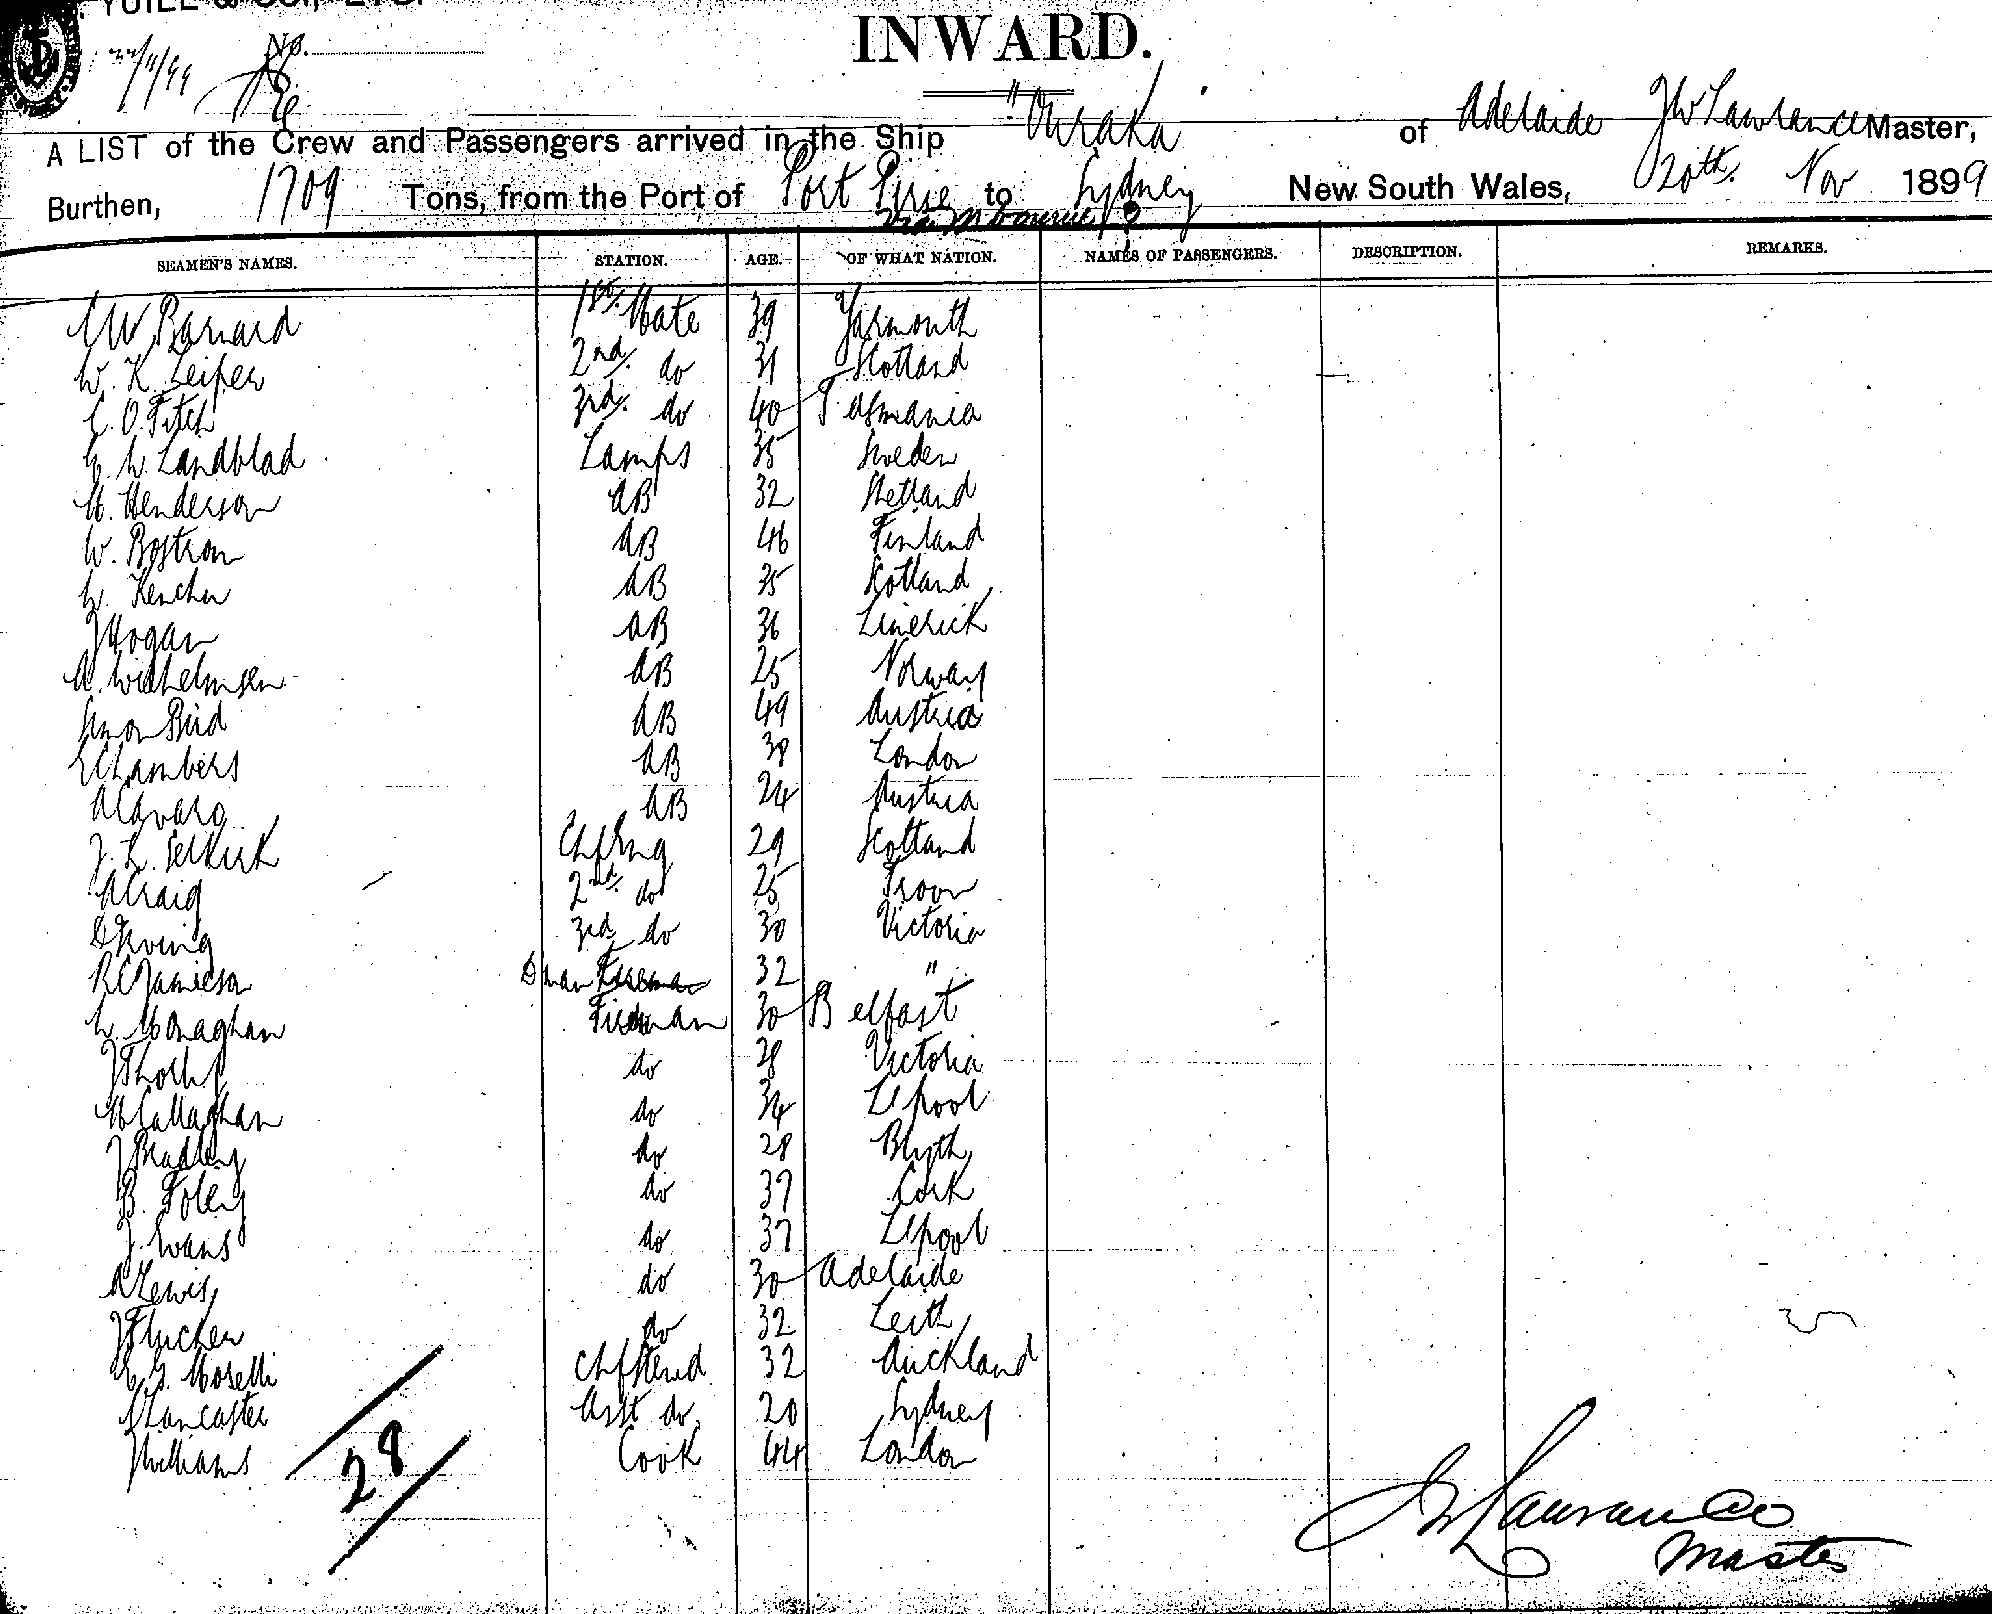 YUILL & CO., LTD.
22/11/99 No.
INWARD.
A LIST of the Crew and Passengers arrived in the Ship "Ouraka of Adelaide JW Lawrance Master,
Burthen, 1709 Tons, from the Port of Port Pirie to Sydney New South Wales, 20th. Nov 1899
via Melbourne
SEAMEN'S NAMES. STATION. AGE. OF WHAT NATION. NAMES OF PASSENGERS. DESCRIPTION. REMARKS.
W Barnard 1st. Mate 39 Yarmouth
W. K. Leiper 2nd. do 31 Scotland
O. Fitch 3rd. do 40 Tasmania
Landblad Lamps 35 Sweden
Henderson AB 32 Shetland
W. Bostrom AB 46 Finland
AB 35 Scotland
J Hogan AB 36 Limerick
A. Wilhelmsen AB 25 Norway
Simon Bird AB 49 Austria
Chambers AB 38 London
AB 24 Austria
J. L. Selkirk Chf Eng 29 Scotland
A Craig 2nd. do 25 Troon
Irving 3rd do 30 Victoria
R C Jamieson Dman 32 "
Monaghan Fireman 30 Belfast
do 28 Victoria
Callaghan do 34 L'pool
J Bradley do 28 Blyth
B. Foley do 37 Cork
J. Evans do 37 L'pool
A Lewis do 30 Adelaide
do 32 Leith
Morelli Chf Stewd 32 Auckland
Lancaster Asst do. 20 Sydney
J Williams Cook 44 London
28
JW Lawrance
Master